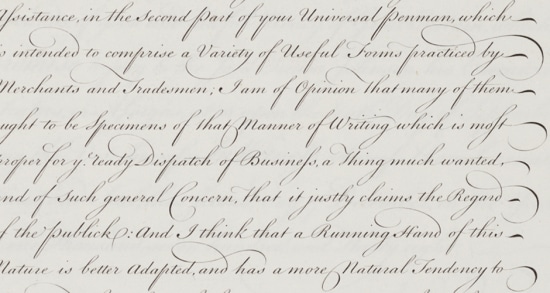 ſsistance, in the Second Part of your Universal Penman, which
s intended to comprise a Variety of Useful Forms practiced by
Merchants and Tradesmen; I am of Opinion that many of them
ught to be Specimens of that Manner of Writing which is moſt
roper for yᵉ ready Dispatch of Buſineſs, a Thing much wanted,
nd of Such general Concern, that it justly claims the Regard
f the Publick: And I think that a Running Hand of this
Nature is better Adapted, and has a more Natural Tendency to